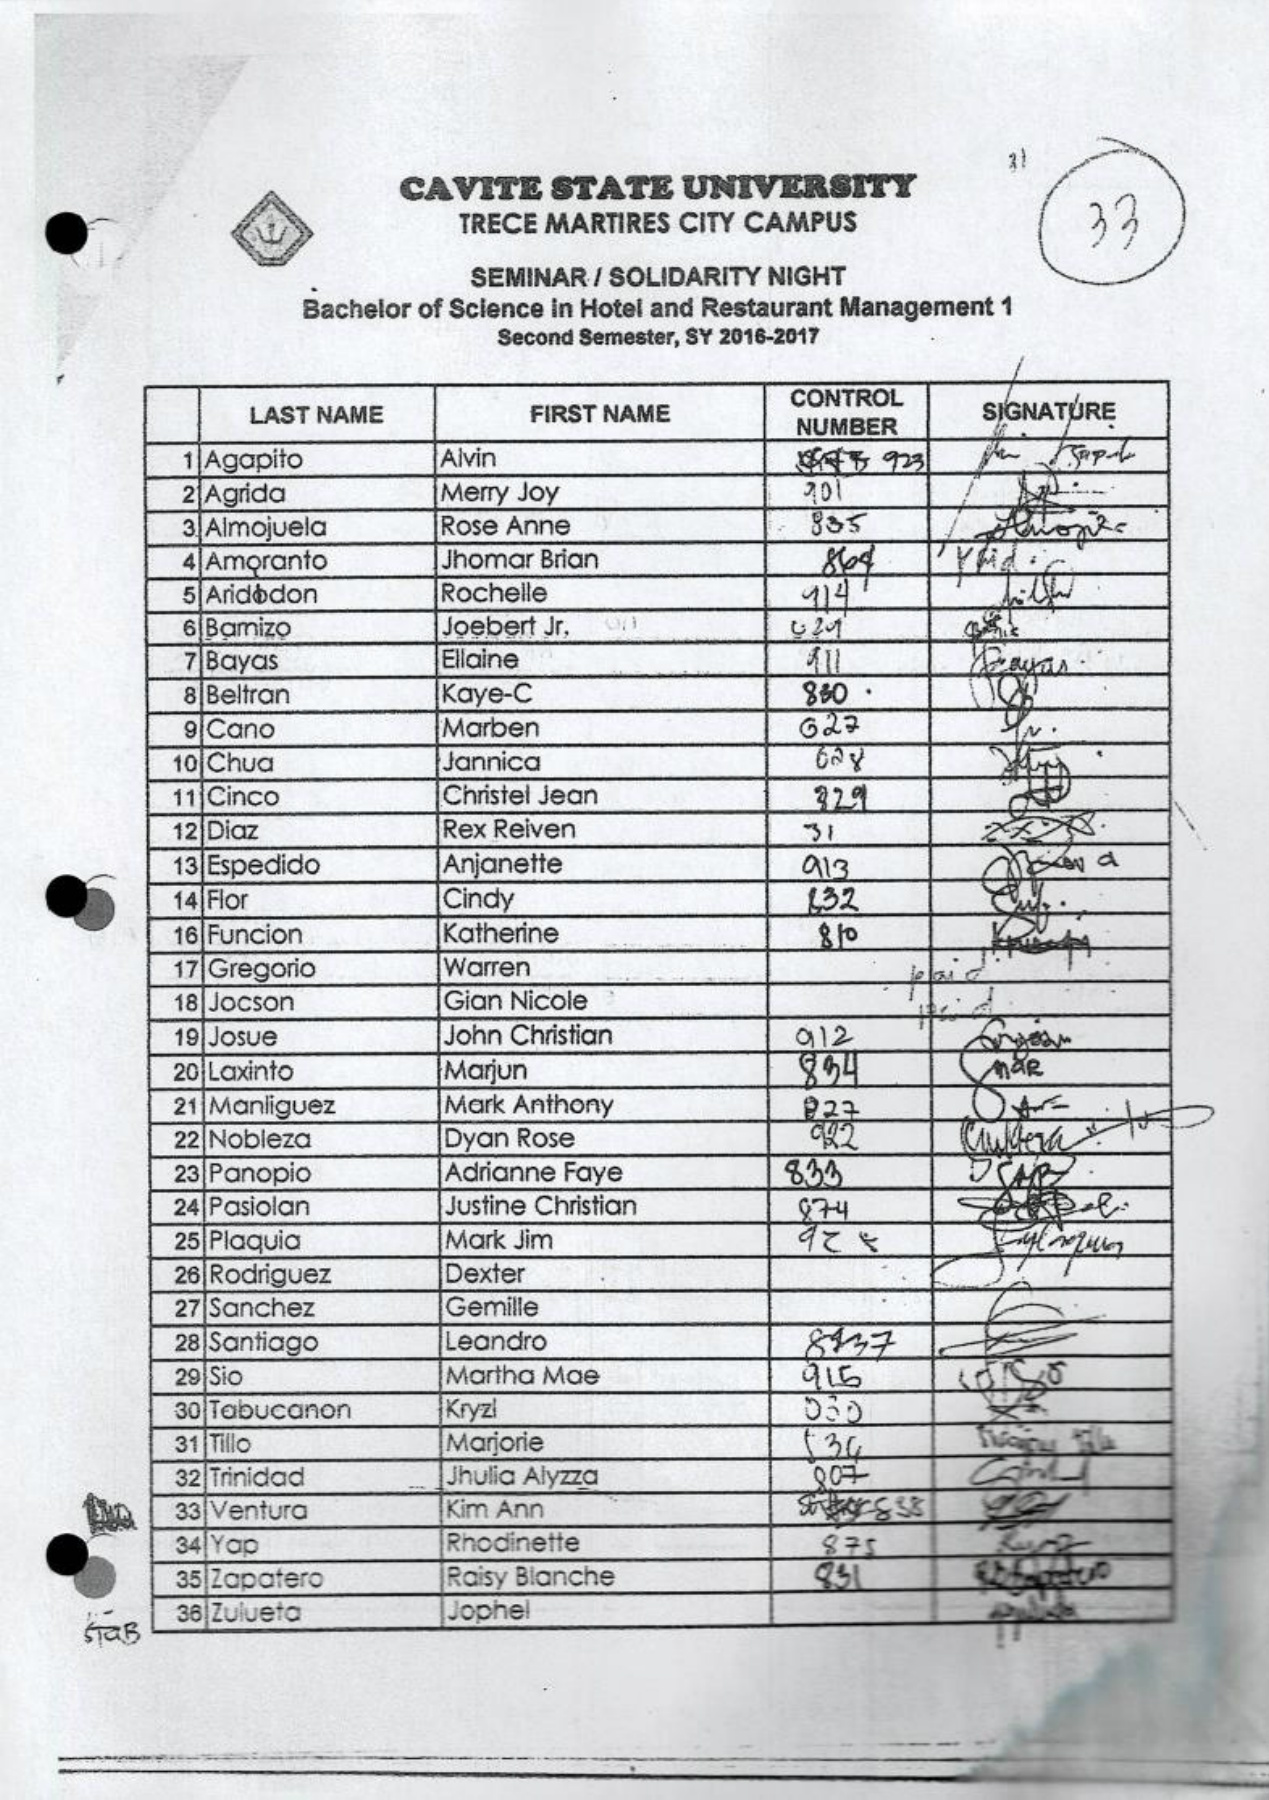 31
33
CAVITE STATE UNIVERSITY
TRECE MARTIRES CITY CAMPUS
SEMINAR / SOLIDARITY NIGHT
Bachelor of Science in Hotel and Restaurant Management 1
Second Semester, SY 2016-2017
LAST NAME FIRST NAME CONTROL NUMBER SIGNATURE
1 Agapito Alvin 923
2 Agrida Merry Joy 901
3 Almojuela Rose Anne 835
4 Amoranto Jhomar Brian 864
5 Aridodon Rochelle 914
6 Barnizo Joebert Jr.
7 Bayas Ellaine 911 Bayas
8 Beltran Kaye-C 830
9 Cano Marben 627
10 Chua Jannica 628
11 Cinco Christel Jean 829
12 Diaz Rex Reiven 31
13 Espedido Anjanette 913
14 Flor Cindy 832
16 Funcion Katherine 810
17 Gregorio Warren paid
18 Jocson Gian Nicole paid
19 Josue John Christian 912
20 Laxinto Marjun 834
21 Manliguez Mark Anthony 827
22 Nobleza Dyan Rose 922
23 Panopio Adrianne Faye 833
24 Pasiolan Justine Christian 874
25 Plaquia Mark Jim
26 Rodriguez Dexter
27 Sanchez Gemille
28 Santiago Leandro
29 Sio Martha Mae 915
30 Tabucanon Kryzl 030
31 Tillo Marjorie
32 Trinidad Jhulia Alyzza 807
33 Ventura Kim Ann 838
34 Yap Rhodinette 875
35 Zapatero Raisy Blanche 831
36 Zulueta Jophel
STAB